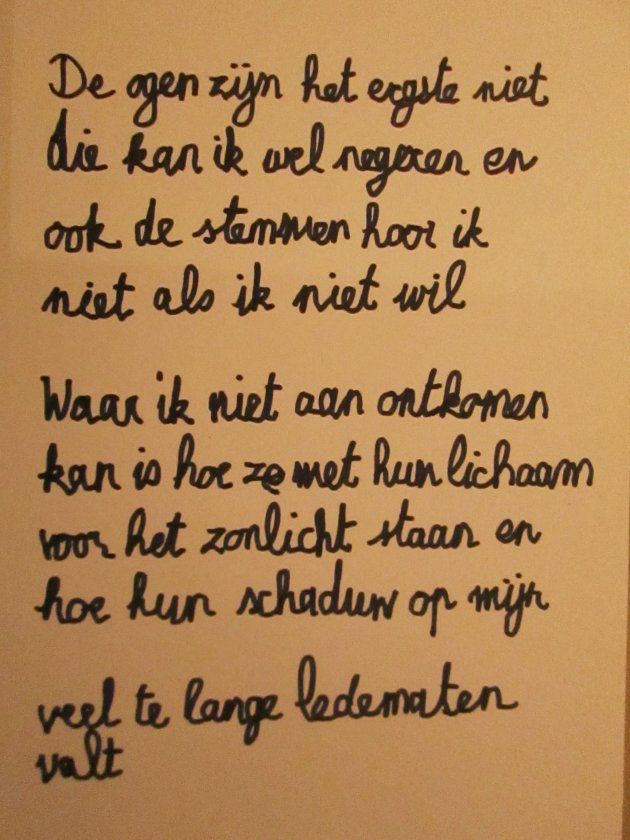 De ogen zijn het ergste niet
die kan ik wel negeren en
ook de stemmen hoor ik
niet als ik niet wil
Waar ik niet aan ontkomen
kan is hoe ze met hun lichaam
voor het zonlicht staan en
hoe hun schaduw op mijn
veel te lange ledematen
valt